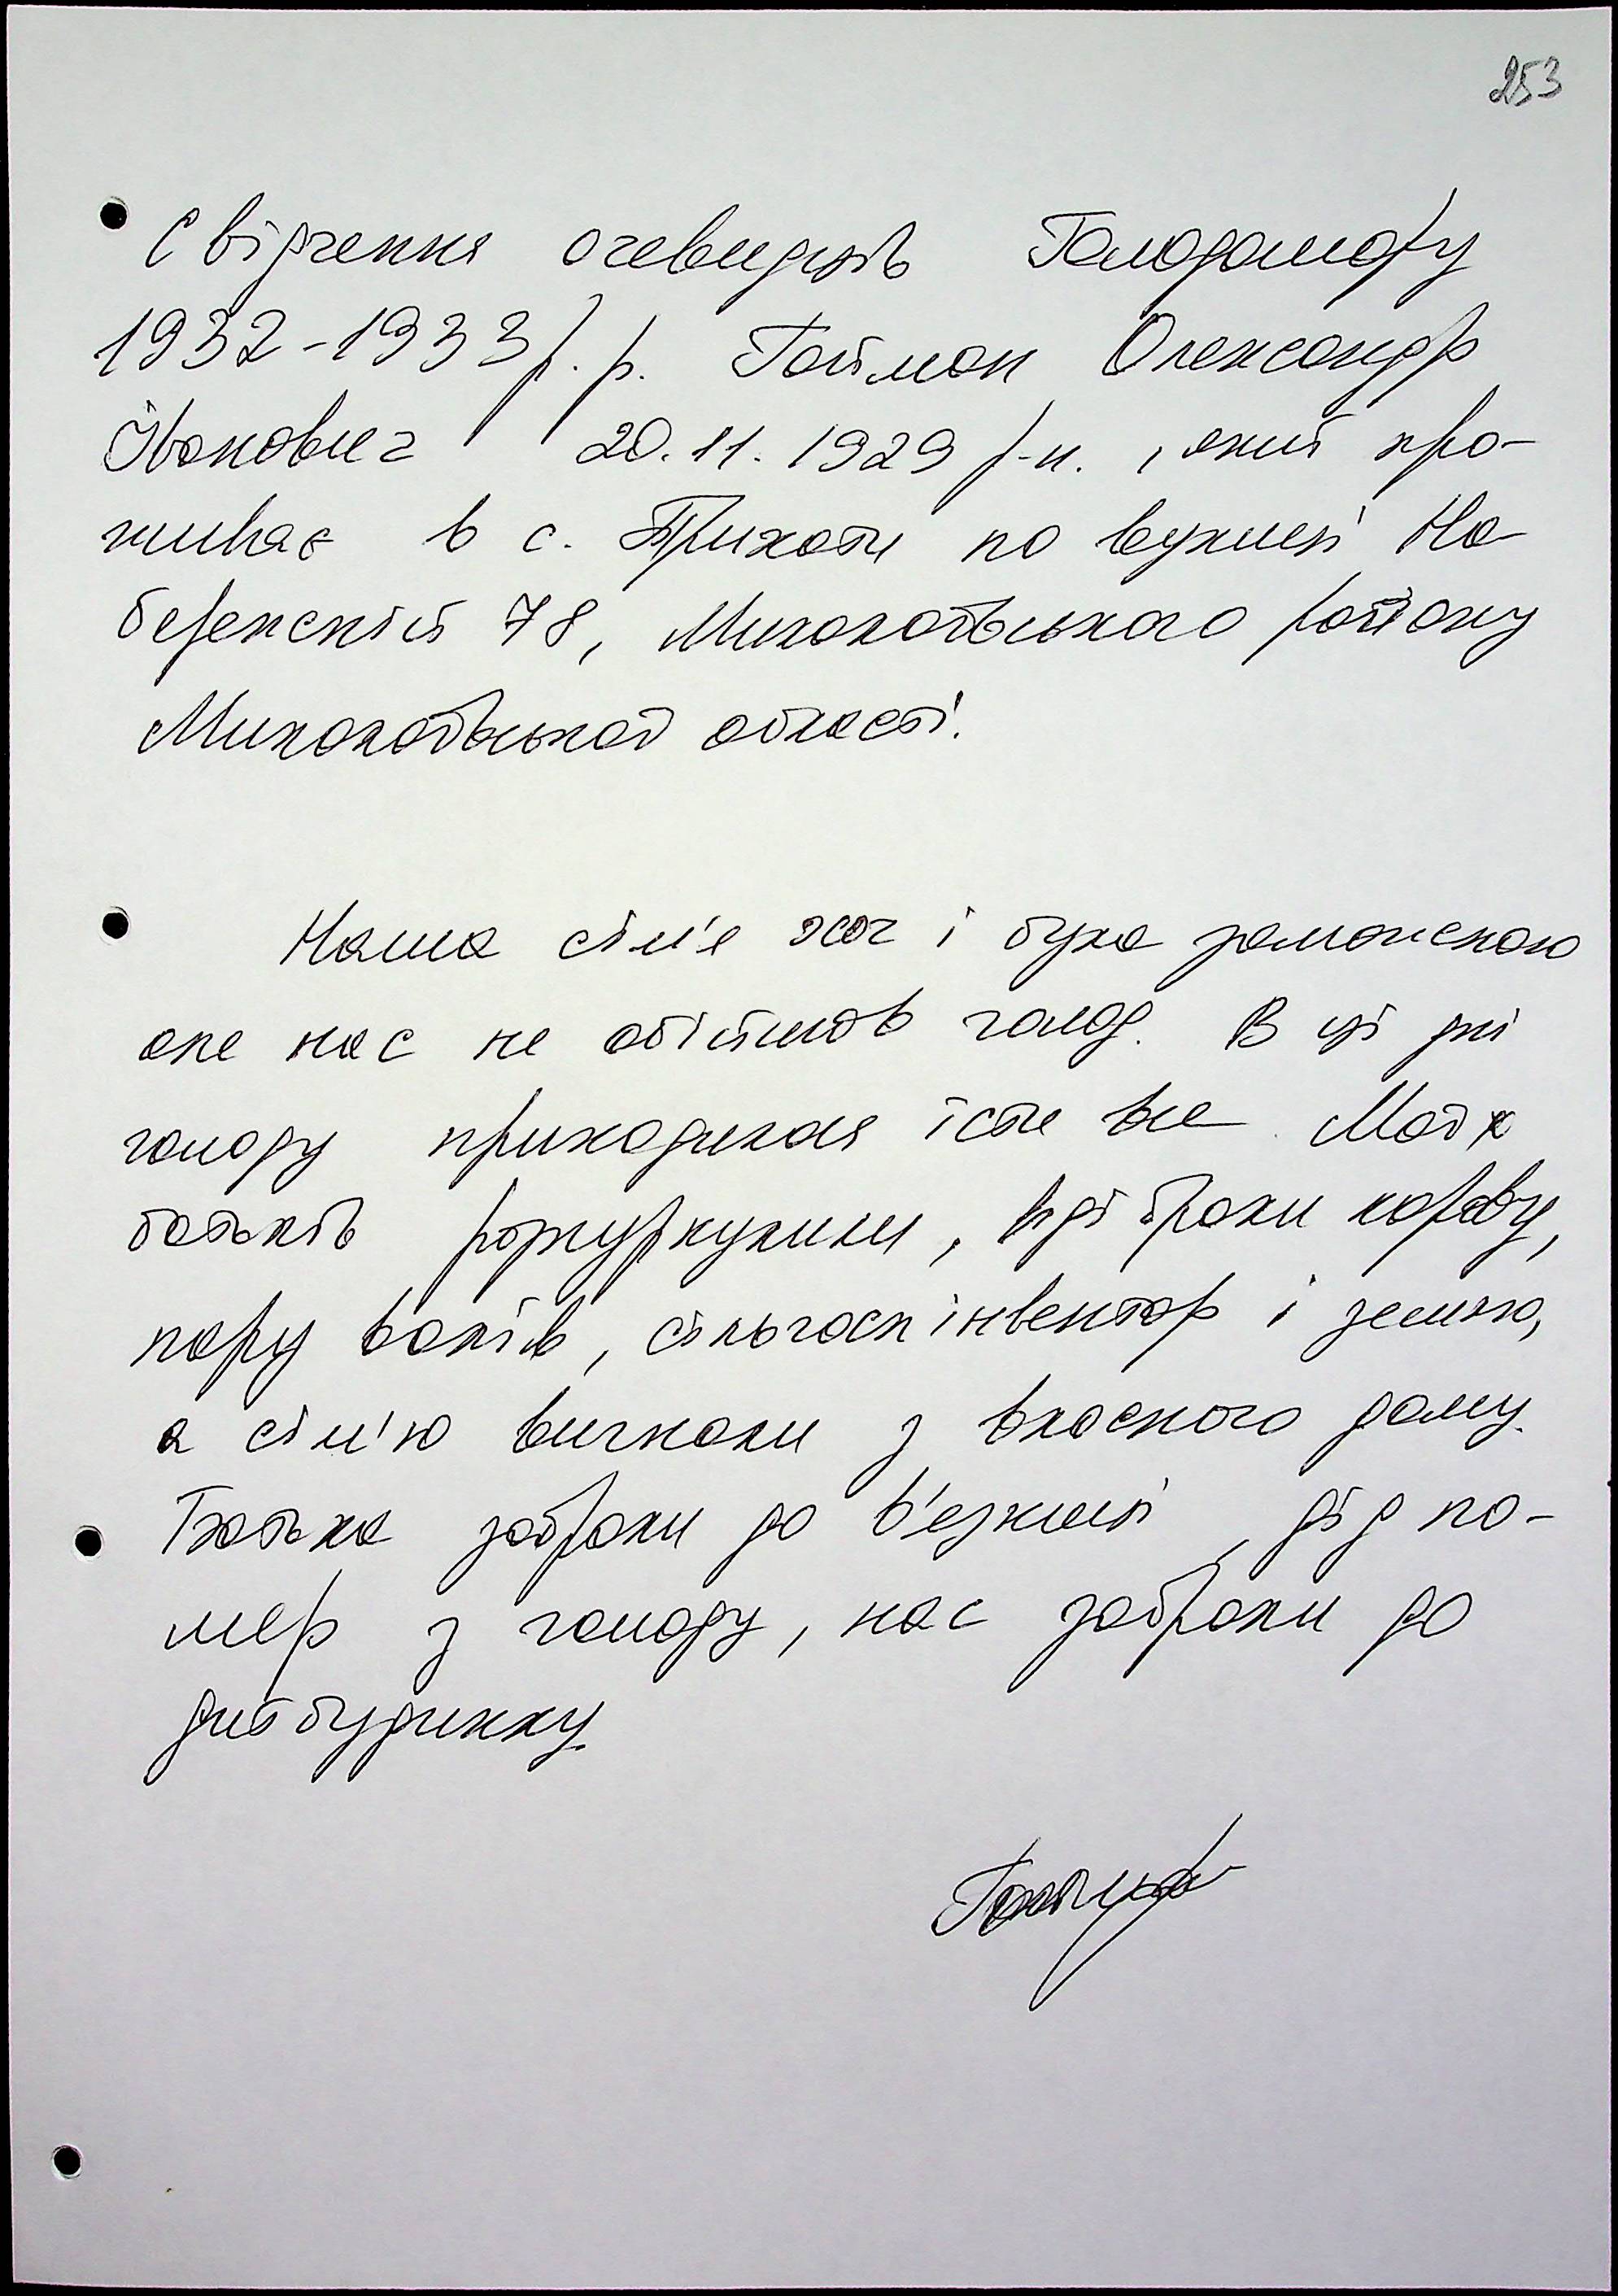 253
Свідчення очевидців Голодомору
1932-1933 р.р. Гойман Олександр
Іванович 20.11.1929 р.н., який про-
живає в с. по вулиці На
бережній 78, Миколаївського району
Миколаївської області.
Наша сім'я хоч і була заможною
але нас не обійшов голод. В ці дні
голоду приходилося їсти все. Моїх
батьків розкуркулили, відібрали корову,
пару волів, сільгоспінвентар і землю,
а сім'ю вигнали з власного дому.
Батька забрали до в'язниці, дід по-
мер з голоду, нас забрали до
дитбудинку.